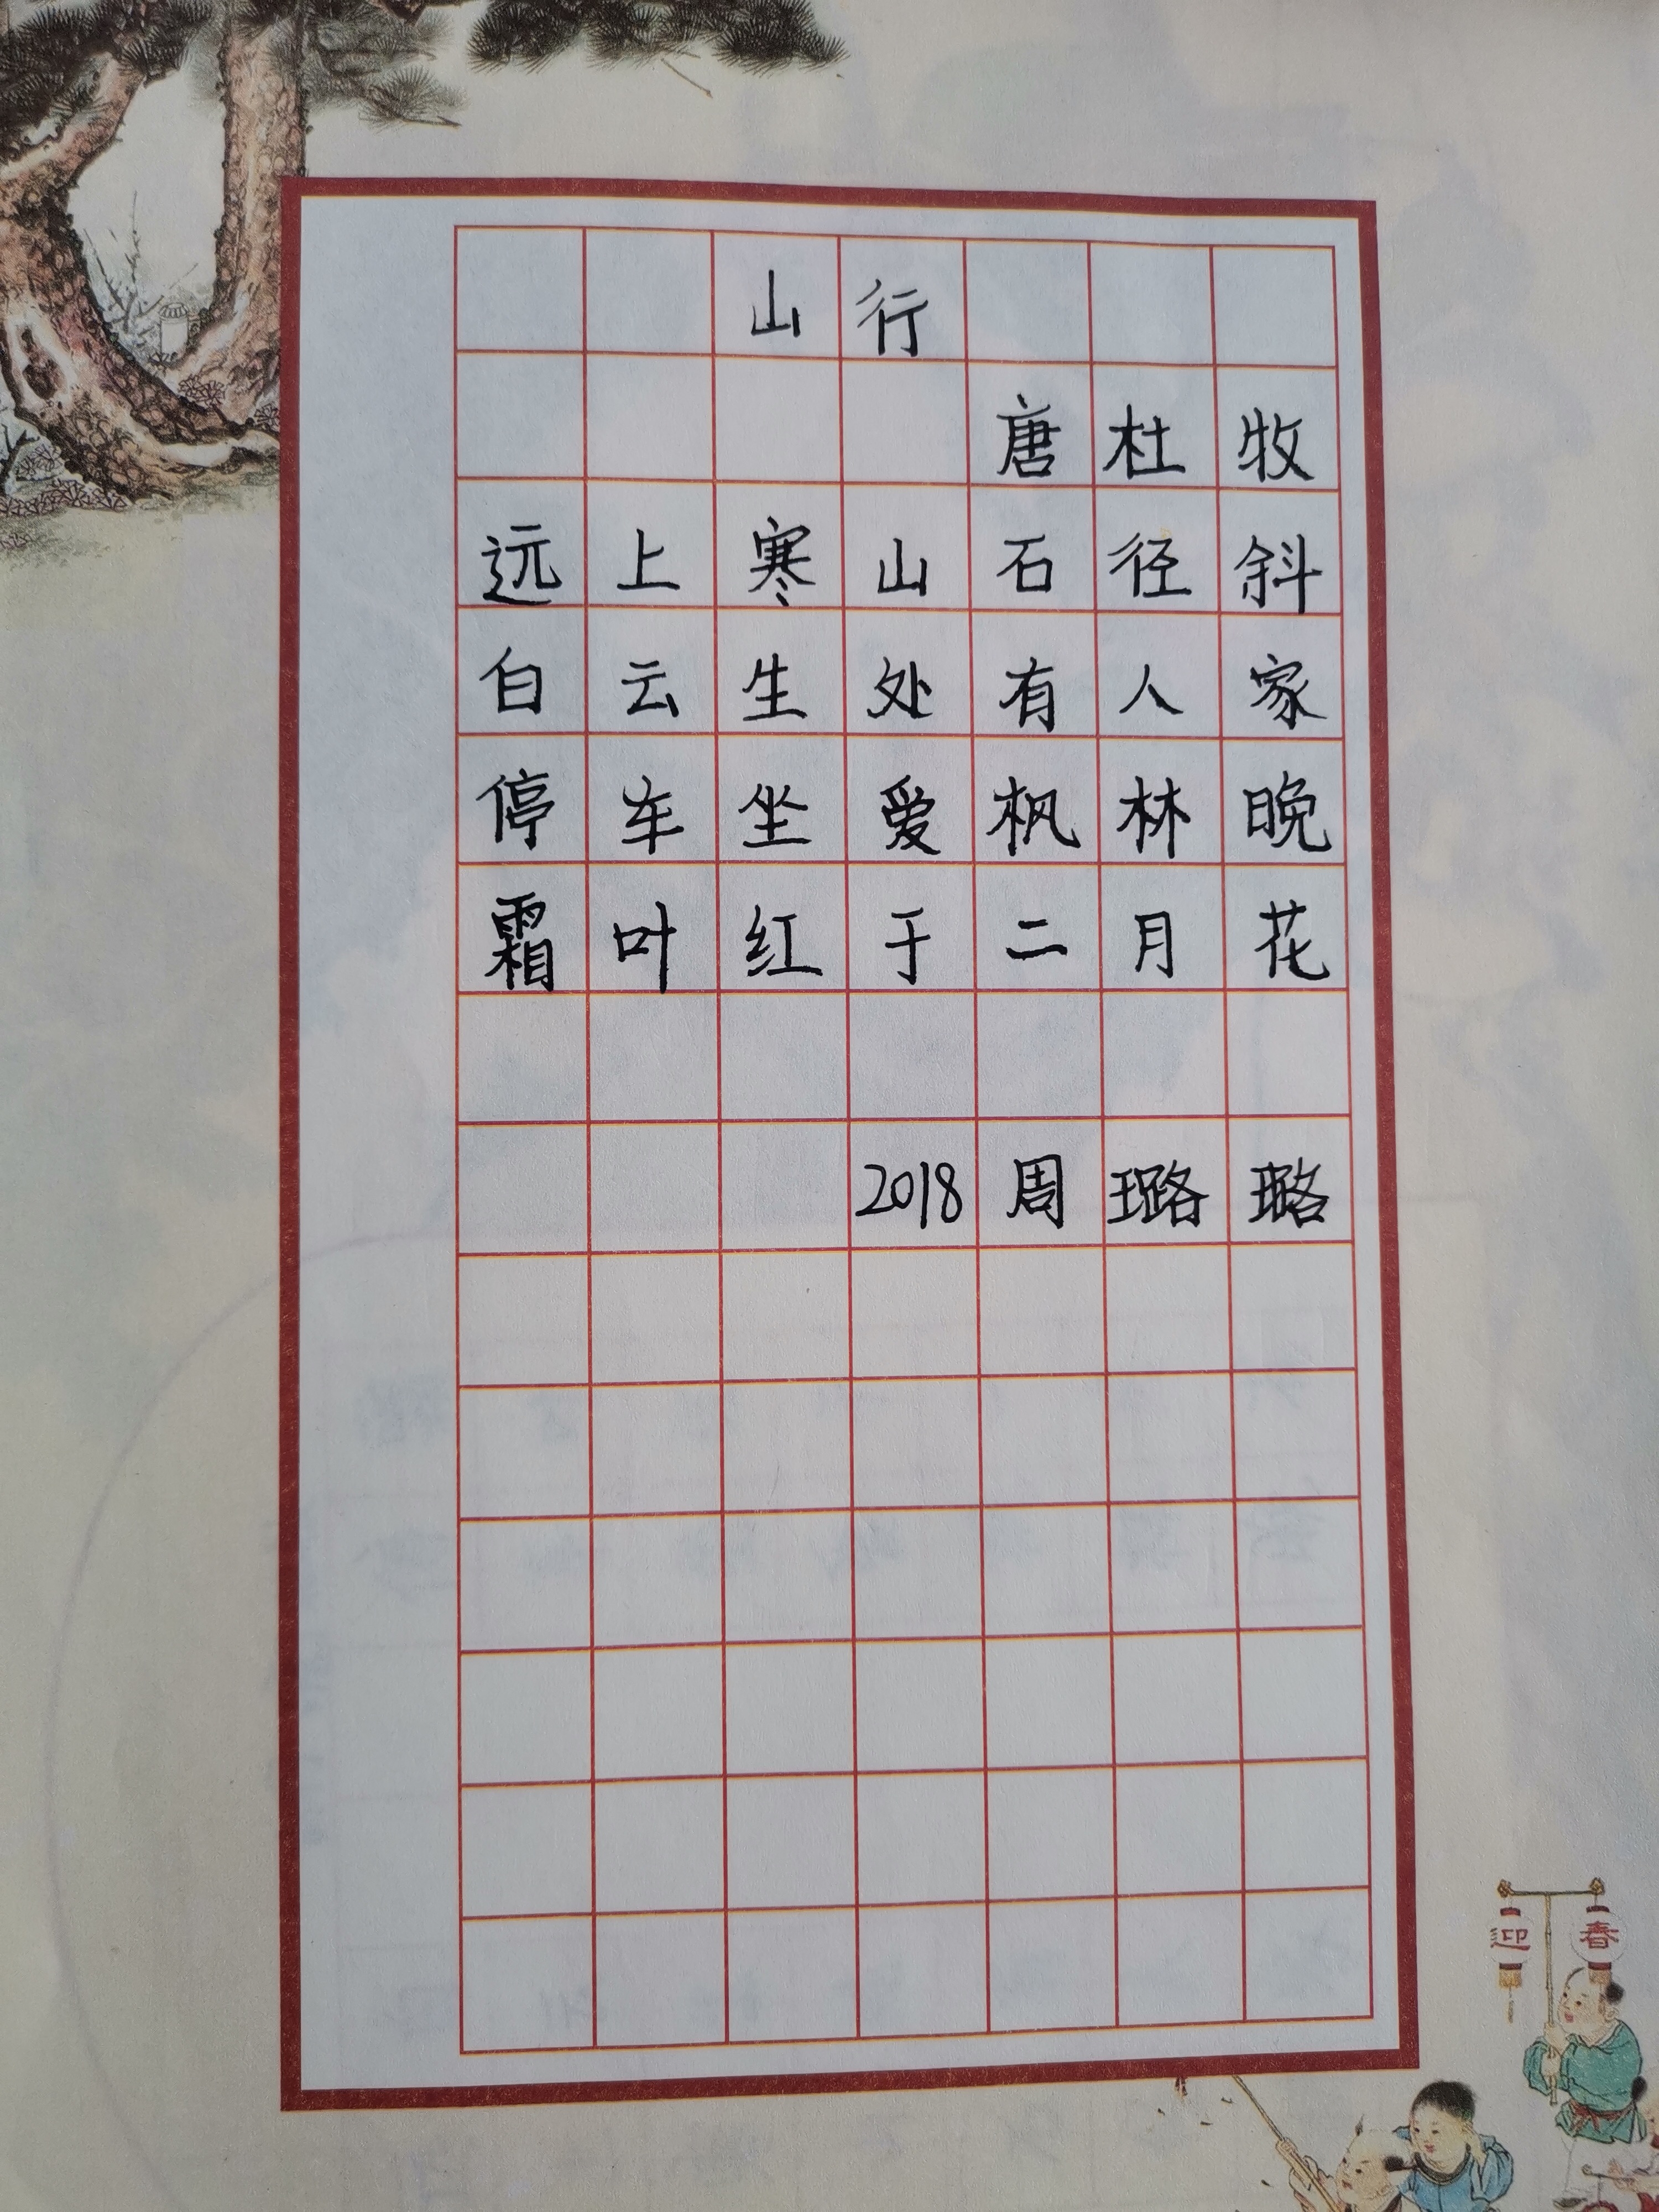 山行
唐杜牧
远上寒山石径斜
白云生处有人家
停车坐爱枫林晚
霜叶红于二月花
2018周璐璐
迎春